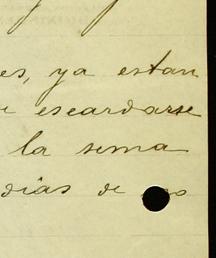 es, ya estan
escardarse
la sema
dias de